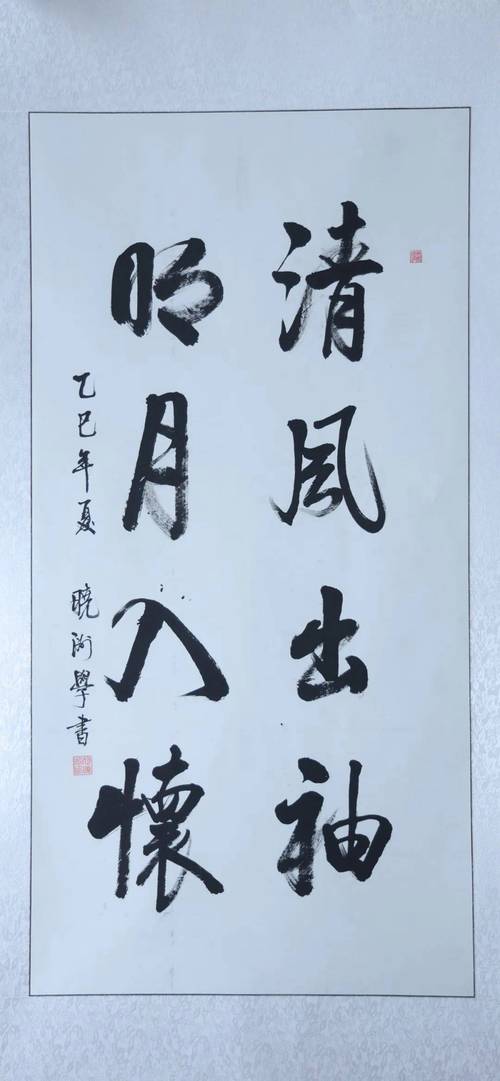 清风出袖
明月入懷
乙巳年夏 曉洲學書